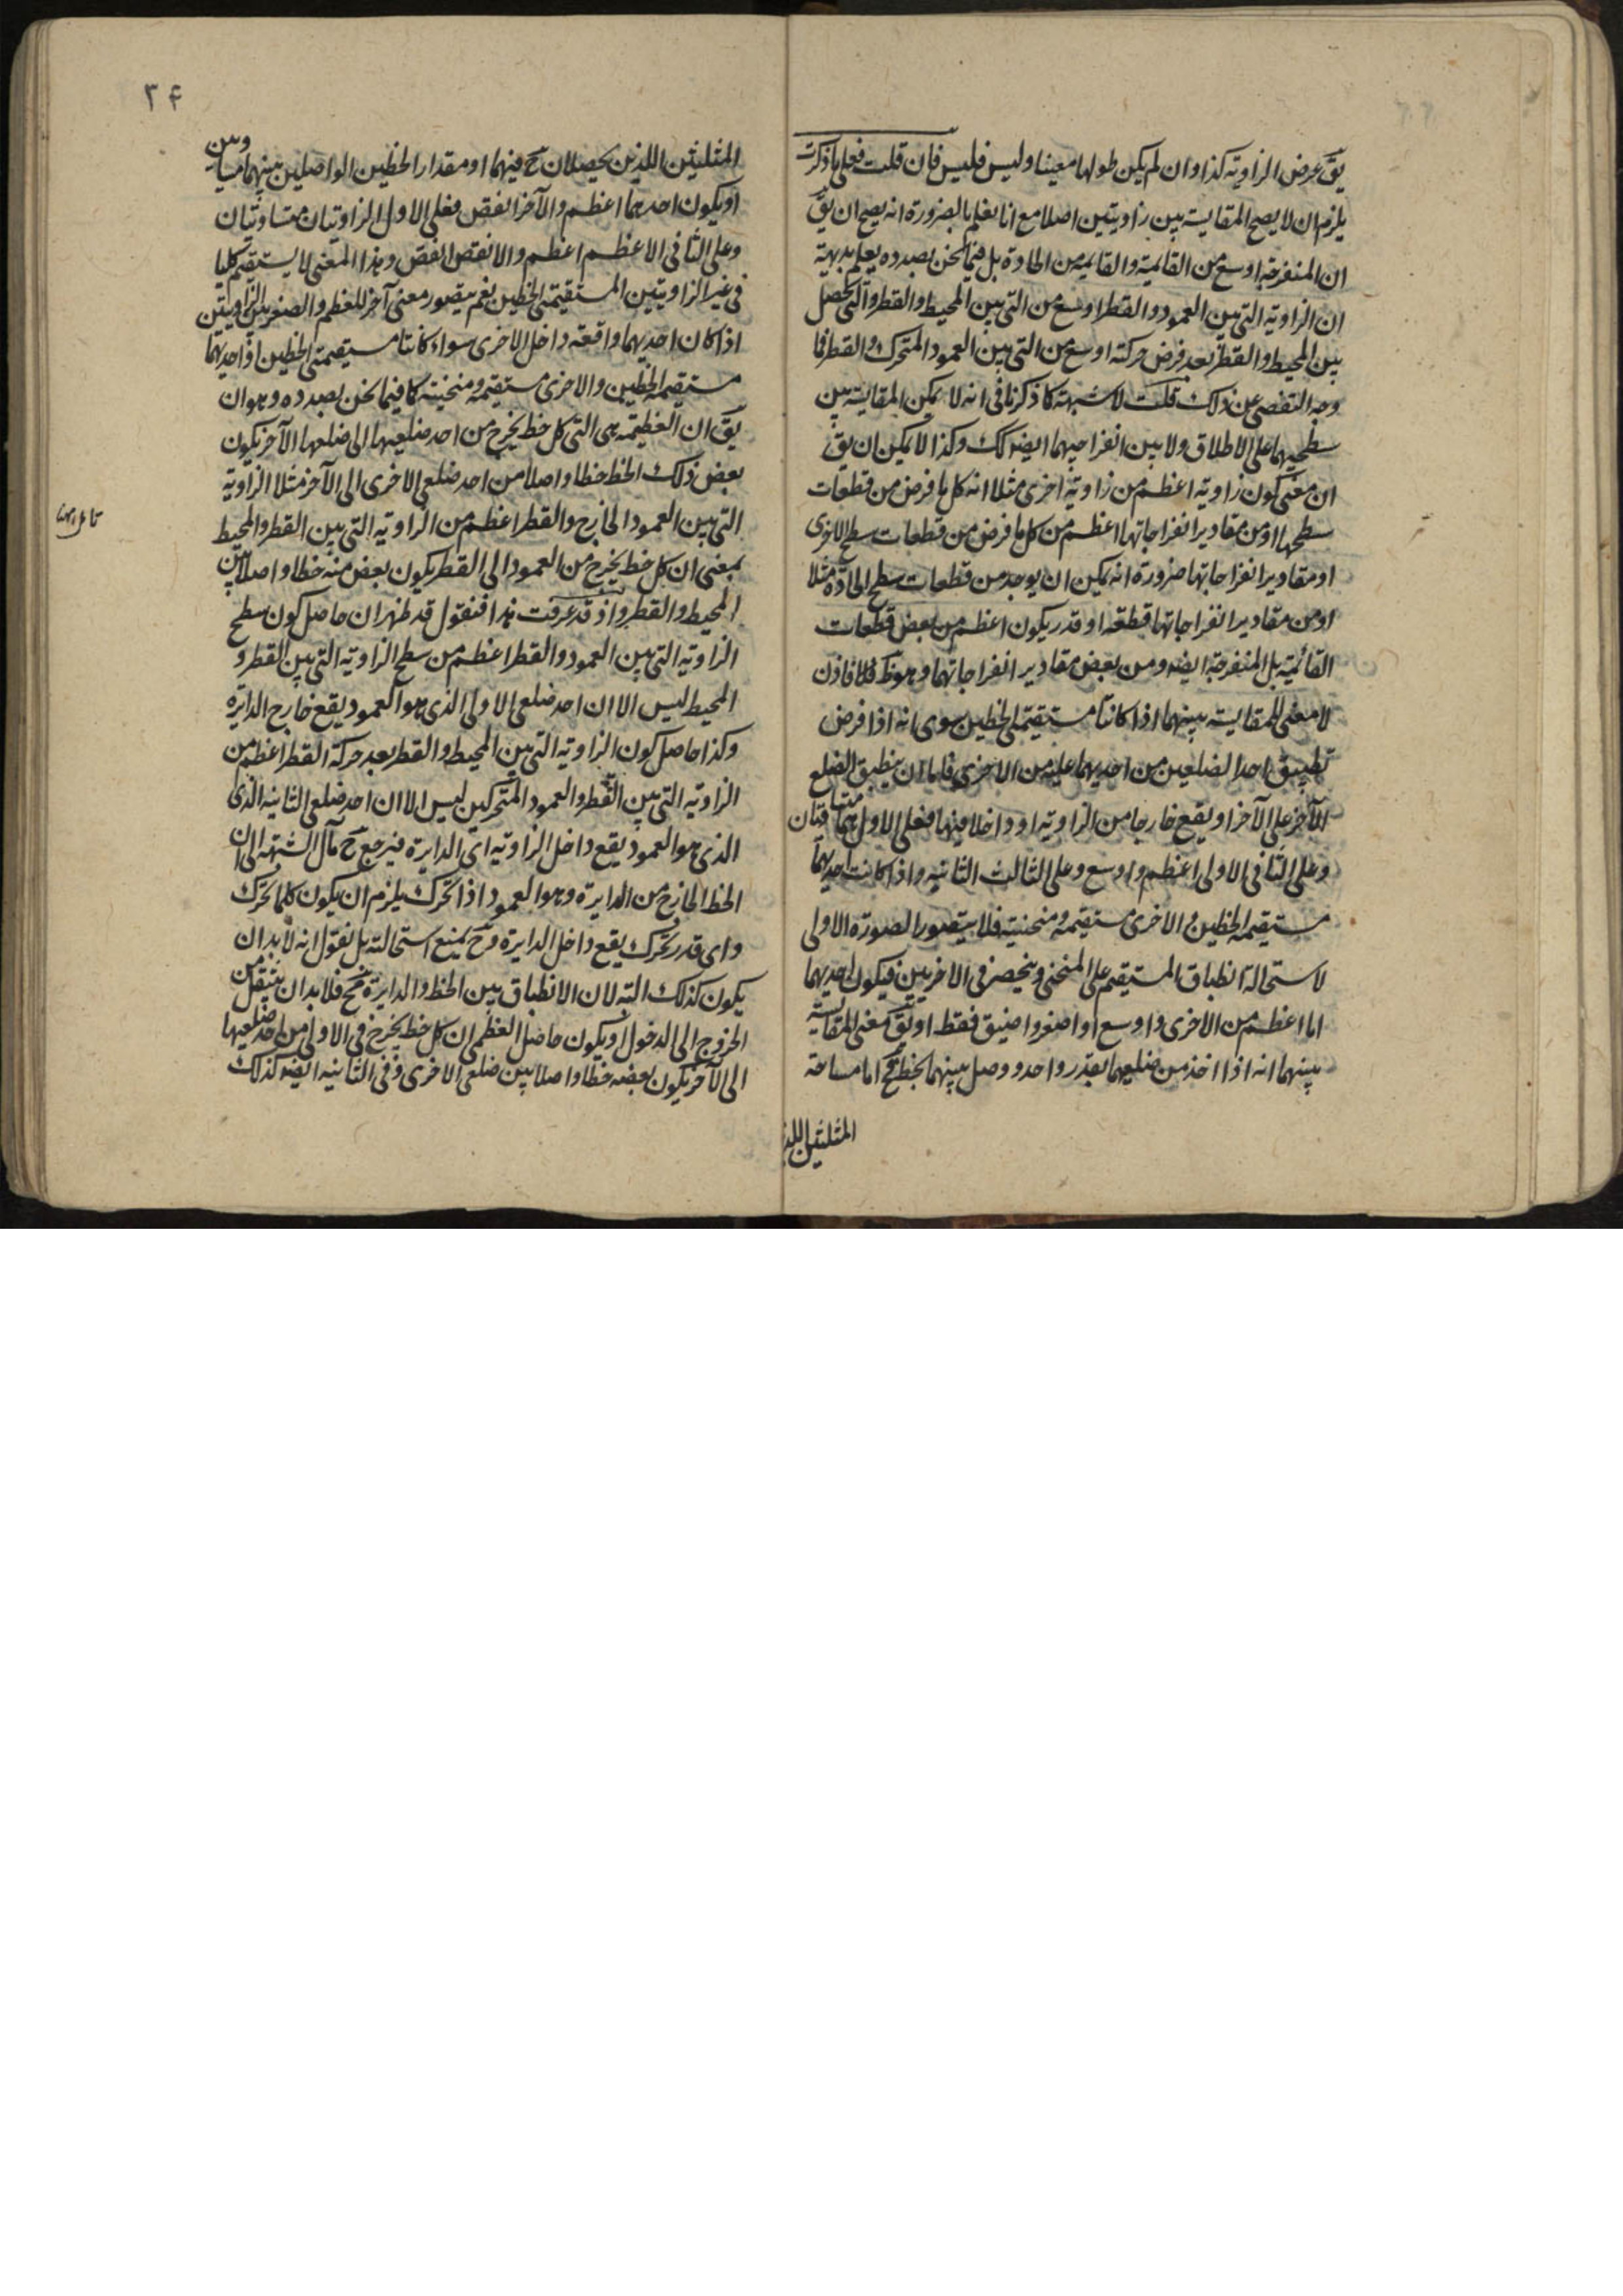 يق عرض الزاوية كذا وان لم يكن طولها معينا وليس فليس فان قلت فعلى ما ذكرت
يلزم ان لا يصح المقايسة بين زاويتين اصلا مع انا نعلم بالضرورة انه يصح ان يق
ان المنفرجة اوسع من القائمة والقائمة من الحادة بل فيما نحن بصدده يعلم بديهة
ان الزاوية التى بين العمود والقطر اوسع من التى بين المحيط والقطر والتى تحصل
بين المحيط والقطر بعد فرض حركته اوسع من التى بين العمود المتحرك والقطر فما
وجه التفصى عن ذلك قلت لا شبهة كما ذكرنا فى انه لا يمكن المقايسة بين
سطحيهما على الاطلاق ولا بين انفراجيهما ايضه كك وكذا لا يمكن ان يق
ان معنى كون زاوية اعظم من زاوية اخرى مثلا انه كل ما فرض من قطعات
سطحها او من مقادير انفراجاتها اعظم من كل ما فرض من قطعات سطح الاخرى
او مقادير انفراجاتها ضرورة انه يمكن ان يوجد من قطعات سطح الحادة مثلا
او من مقادير انفراجاتها قطعة او قدر يكون اعظم من بعض قطعات
القائمة بل المنفرجة ايضه ومن بعض مقادير انفراجاتهما وهو ظ فلا فاذن
لا معنى للمقايسة بينهما اذا كانتا مستقيمتى الخطين سوى انه اذا فرض
تطبيق احد الضلعين من احديهما عليه من الاخرى فاما ان ينطبق الضلع
الآخر على الآخر او يقع خارجا من الزاوية او داخلا فيها فعلى الاول هما متساويتان
وعلى الثانى الاولى اعظم واوسع وعلى الثالث الثانية واذا كانت احديهما
مستقيمة الخطين والاخرى مستقيمة ومنحنية فلا يتصور الصورة الاولى
لاستحالة انطباق المستقيم على المنحنى وينحصر فى الاخريين فيكون احديهما
اما اعظم من الاخرى واوسع او اصغر واضيق فقط او يق معنى المقايسة
بينهما انه اذا اخذ من ضلعيهما بقدر واحد ووصل بينهما بخط فح اما مساحة
المثلثين اللذ
۳۴
المثلثين اللذين يحصلان ح فيهما او مقدار الخطين الواصلين بينهما متساويين
او يكون احدهما اعظم والآخر انقص فعلى الاول الزاويتان متساويتان
وعلى الثانى الاعظم اعظم والانقص انقص وهذا المعنى لا يستقيم كليا
فى غير الزاويتين المستقيمتى الخطين نعم يتصور معنى آخر للعظم والصغر بين الزاويتين
اذا كان احديهما واقعة داخل الاخرى سواء كانتا مستقيمتى الخطين او احديهما
مستقيمة الخطين والاخرى مستقيمة ومنحنية كما فيما نحن بصدده وهو ان
يق ان العظيمة هى التى كل خط يخرج من احد ضلعيها الى ضلعها الآخر يكون
بعض ذلك الخط خطا واصلا من احد ضلعى الاخرى الى الآخر مثلا الزاوية
التى بين العمود الخارج والقطر اعظم من الزاوية التى بين القطر والمحيط
بمعنى ان كل خط يخرج من العمود الى القطر يكون بعض منه خطا واصلا بين
المحيط والقطر واذ قد عرفت هذا فنقول قد ظهر ان حاصل كون سطح
الزاوية التى بين العمود والقطر اعظم من سطح الزاوية التى بين القطر و
المحيط ليس الا ان احد ضلعى الاولى الذى هو العمود يقع خارج الدائرة
وكذا حاصل كون الزاوية التى بين المحيط والقطر بعد حركة القطر اعظم من
الزاوية التى بين القطر والعمود المتحركين ليس الا ان احد ضلعى الثانية الذى
الذى هو العمود يقع داخل الزاوية اى الدايرة فيرجع ح مآل الشبهة الى ان
الخط الخارج من الدايرة وهو العمود اذا تحرك يلزم ان يكون كلما تحرك
واى قدر تحرك يقع داخل الدايرة وح يمنع استحالته بل نقول انه لا بد ان
يكون كذلك البتة لان الانطباق بين الخط والدايرة مح فلا بد ان ينتقل من
الخروج الى الدخول او يكون حاصل العظمى ان كل خط يخرج فى الاولى من احد ضلعيها
الى الآخر يكون بعضه خطا واصلا بين ضلعى الاخرى وفى الثانية ايضه كذلك